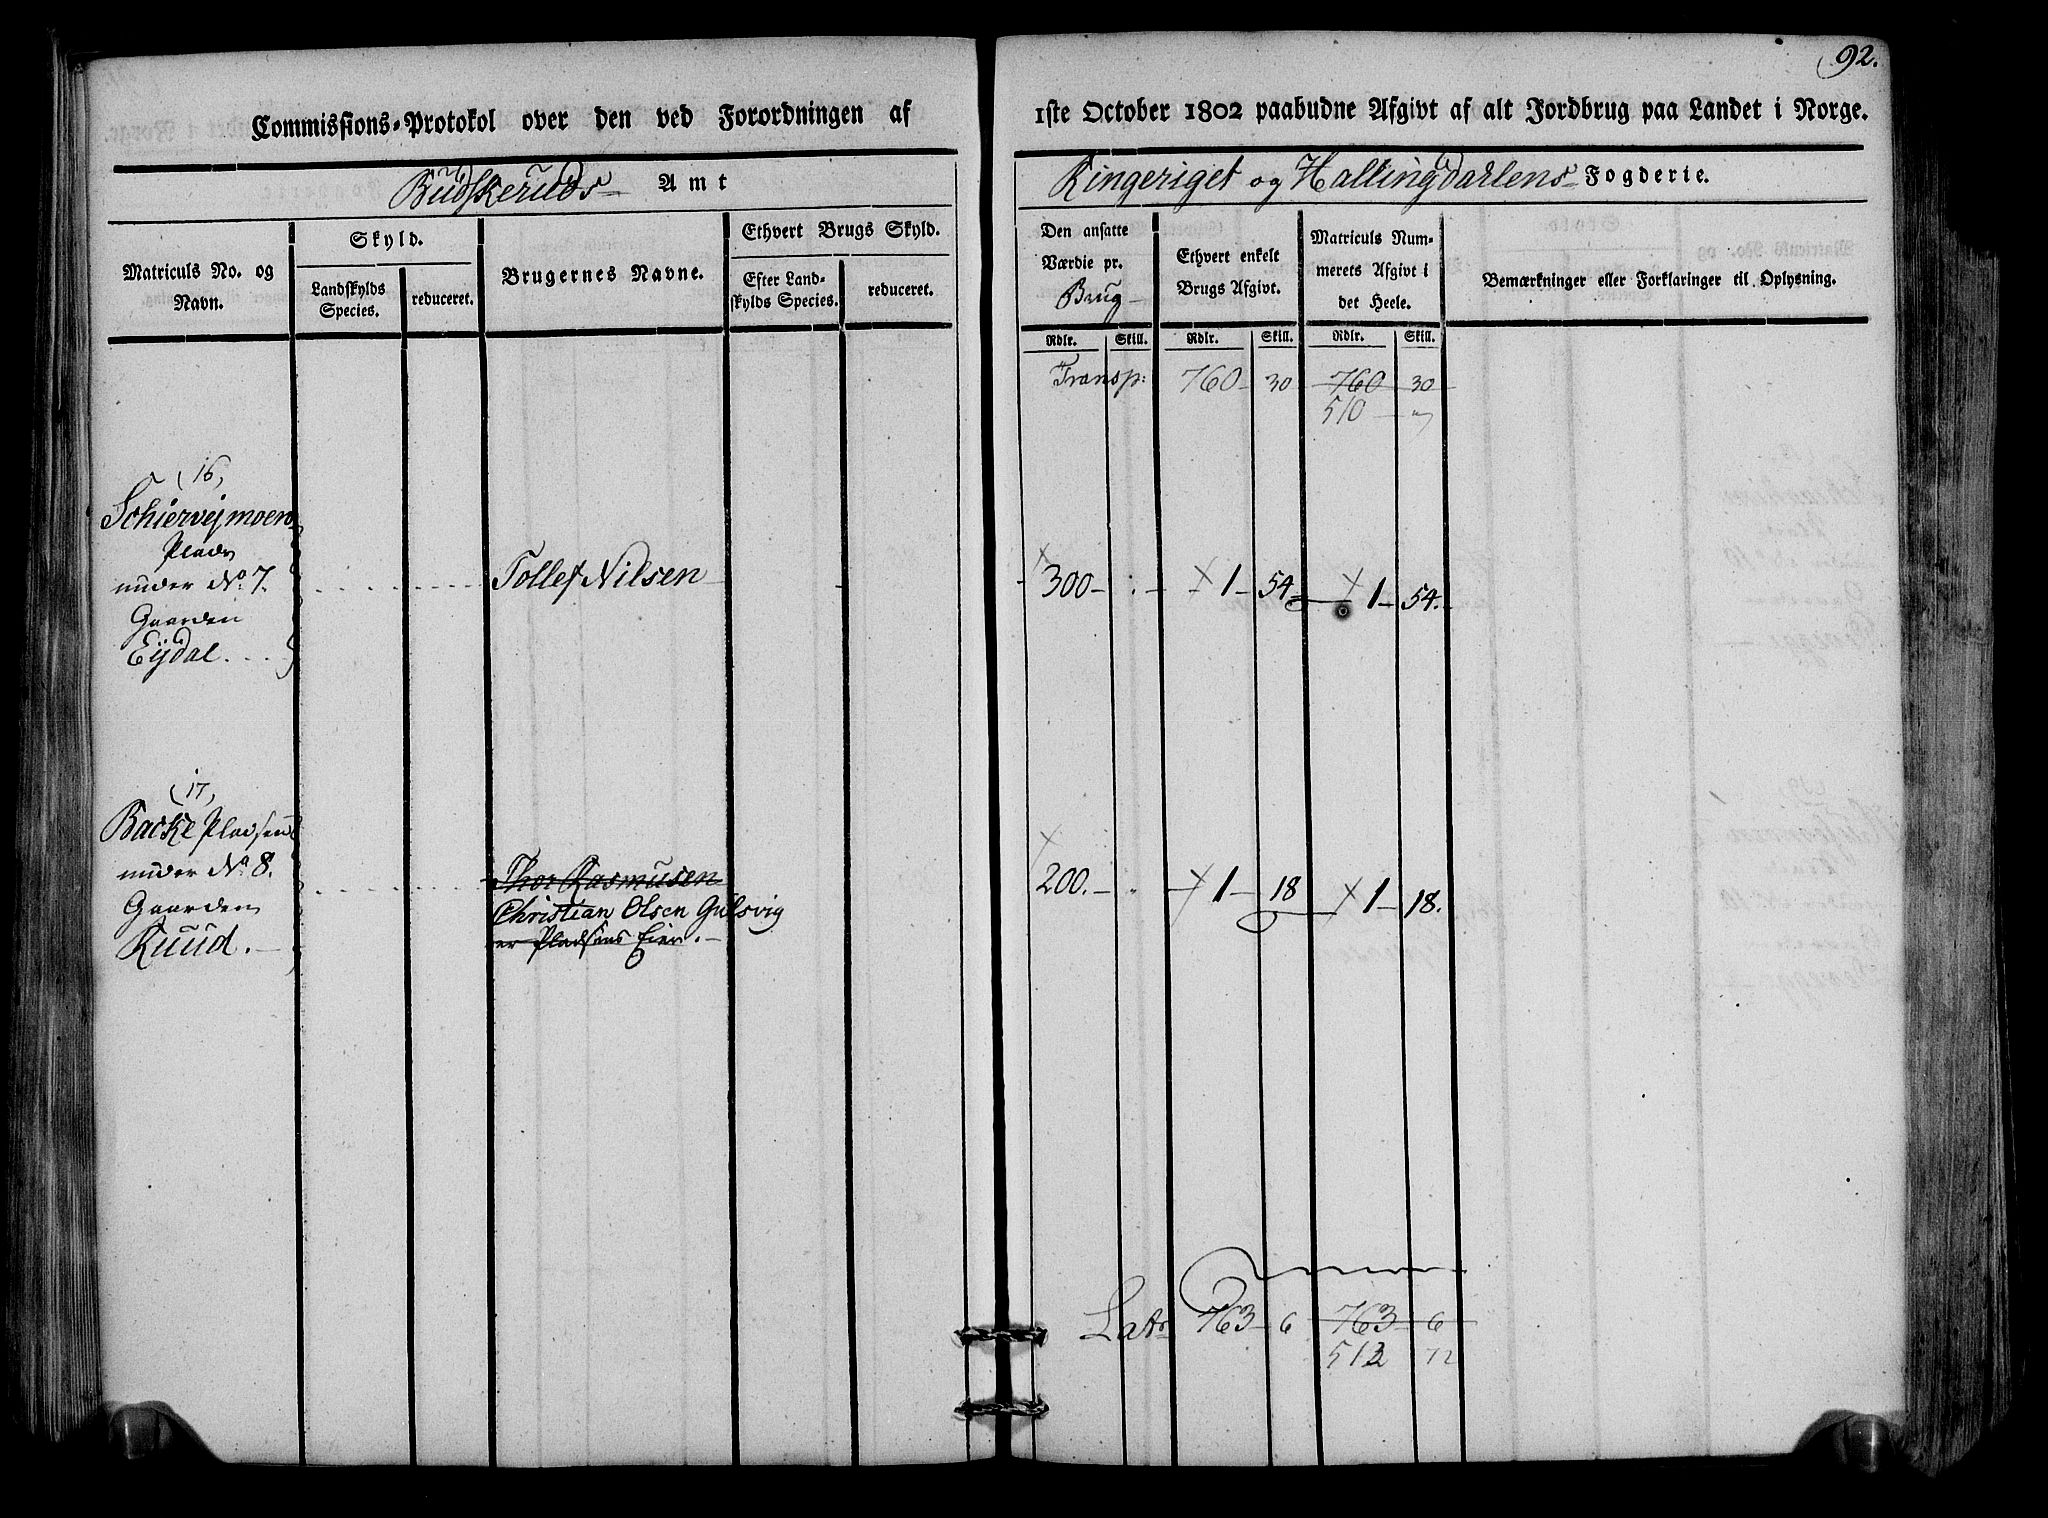 92.
Commissions-Protokol over den ved Forordningen af 1ste October 1802 paabudne Afgivt af alt Jordbrug paa Landet i Norge.
Budskeruds Amt
Ringeriget og Hallingdarlens Fogderie.
Matriculs No. og Navn.
Skyld.
Landskylds Species.
reduceret.
Brugernes Navne.
Ethvert Brugs Skyld.
Efter Landskylds Species.
reduceret.
Den ansatte Værdie pr. Brug
Ethvert enkelt Brugs Afgivt.
Matriculs Nummerets Afgivt i det Heele.
Bemærkninger eller Forklaringer til Oplysning.
Rdlr. Skill. Rdlr. Skill. Rdlr. Skill.
Transp: 760 30 760 30
510 "
(16)
Schiervejmoen
Plads
under No. 7.
Gaarden
Eijdal.
Tollef Nilsen
300 1 54 1 54.
(17)
Backe Pladsen
under No. 8.
Gaarden
Ruud.
Thor Rasmusen
Christian Olsen Gulsvig
er Pladsens Eier.
200. 1 18 1 18.
Latr 763 6 763 6
512 72